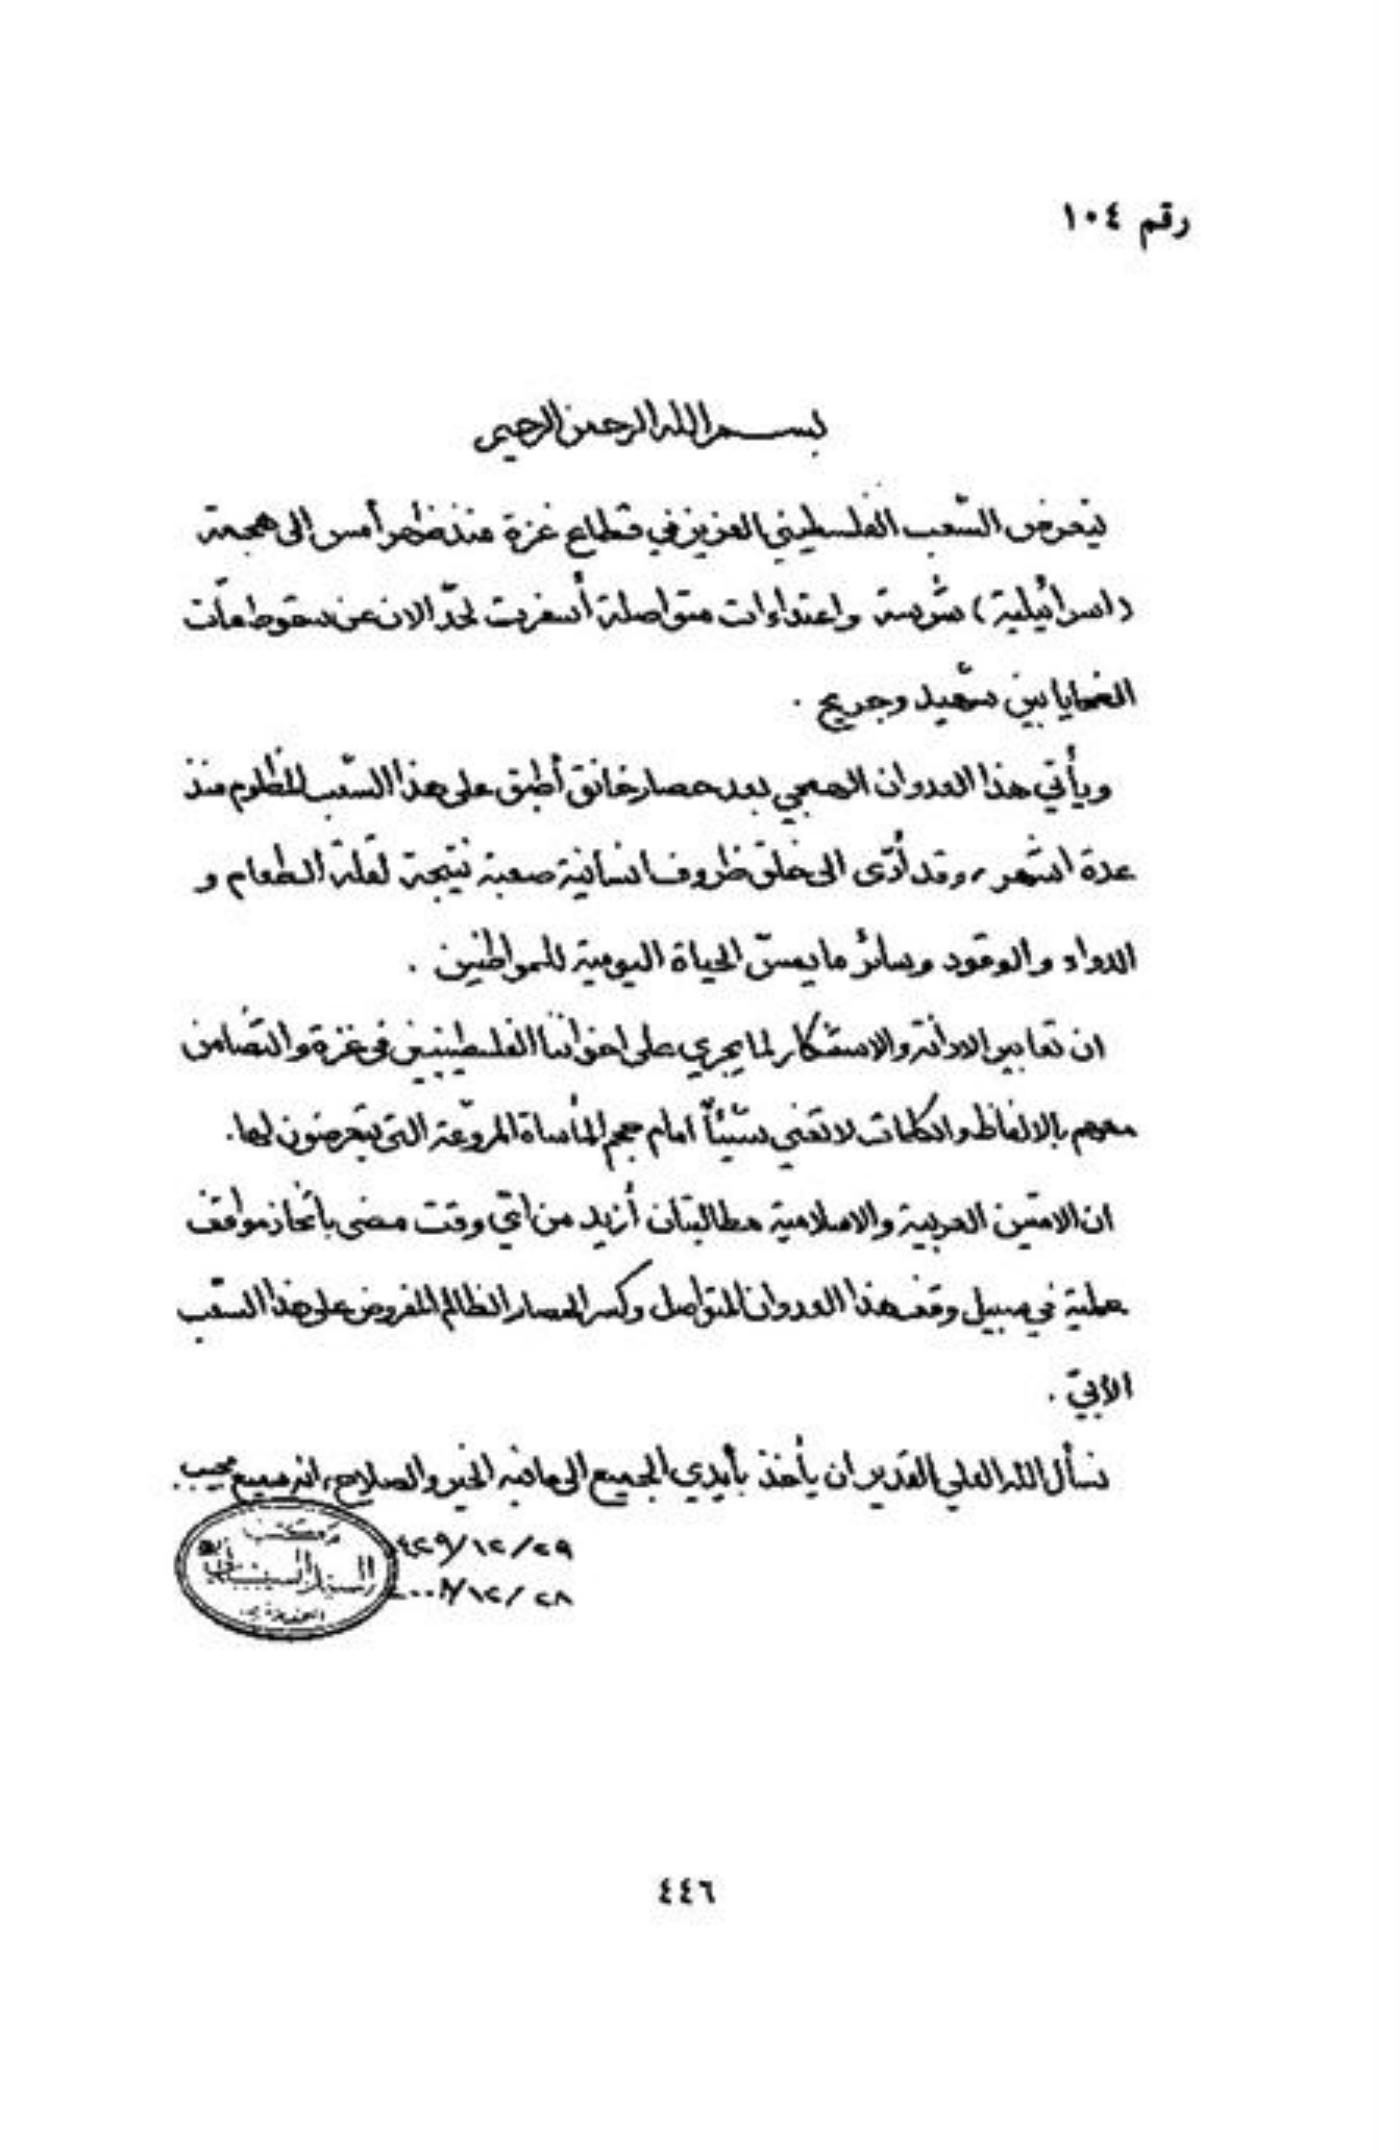 رقم ١٠٤
بسم الله الرحمن الرحيم
يتعرض الشّعب الفلسطيني العزيز في قطاع غزة منذ ظهر أمس الى هجمة
(اسرائيلية) شرسة واعتداءات متواصلة أسفرت لحدّ الان عن سقوط مآت
الضحايا بين شهيد وجريح .
ويأتي هذا العدوان الهمجي بعد حصار خانق أطبق على هذا الشّعب المظلوم منذ
عدة اشهر، وقد أدّى الى خلق ظروف انسانية صعبة نتيجة لقلة الطعام و
الدواء والوقود وسائر ما يمسّ الحياة اليومية للمواطنين .
ان تعابير الادانة والاستنكار لما يجري على اخواننا الفلسطينيين في غزة والتضامن
معهم بالالفاظ والكلمات لا تعني شيئاً امام حجم المأساة المروّعة التي يتعرضون لها.
ان الامتين العربية والاسلامية مطالبتان أزيد من ايّ وقت مضى باتخاذ مواقف
عملية في سبيل وقف هذا العدوان المتواصل وكسر الحصار الظالم المفروض على هذا الشّعب
الأبيّ .
نسأل الله العلي القدير ان يأخذ بأيدي الجميع الى ما فيه الخير والصلاح، انه سميع مجيب.
٢٩/١٢/١٤٢٩
٢٨/١٢/٢٠٠٨
مكتب
السيد السيستاني
٤٤٦